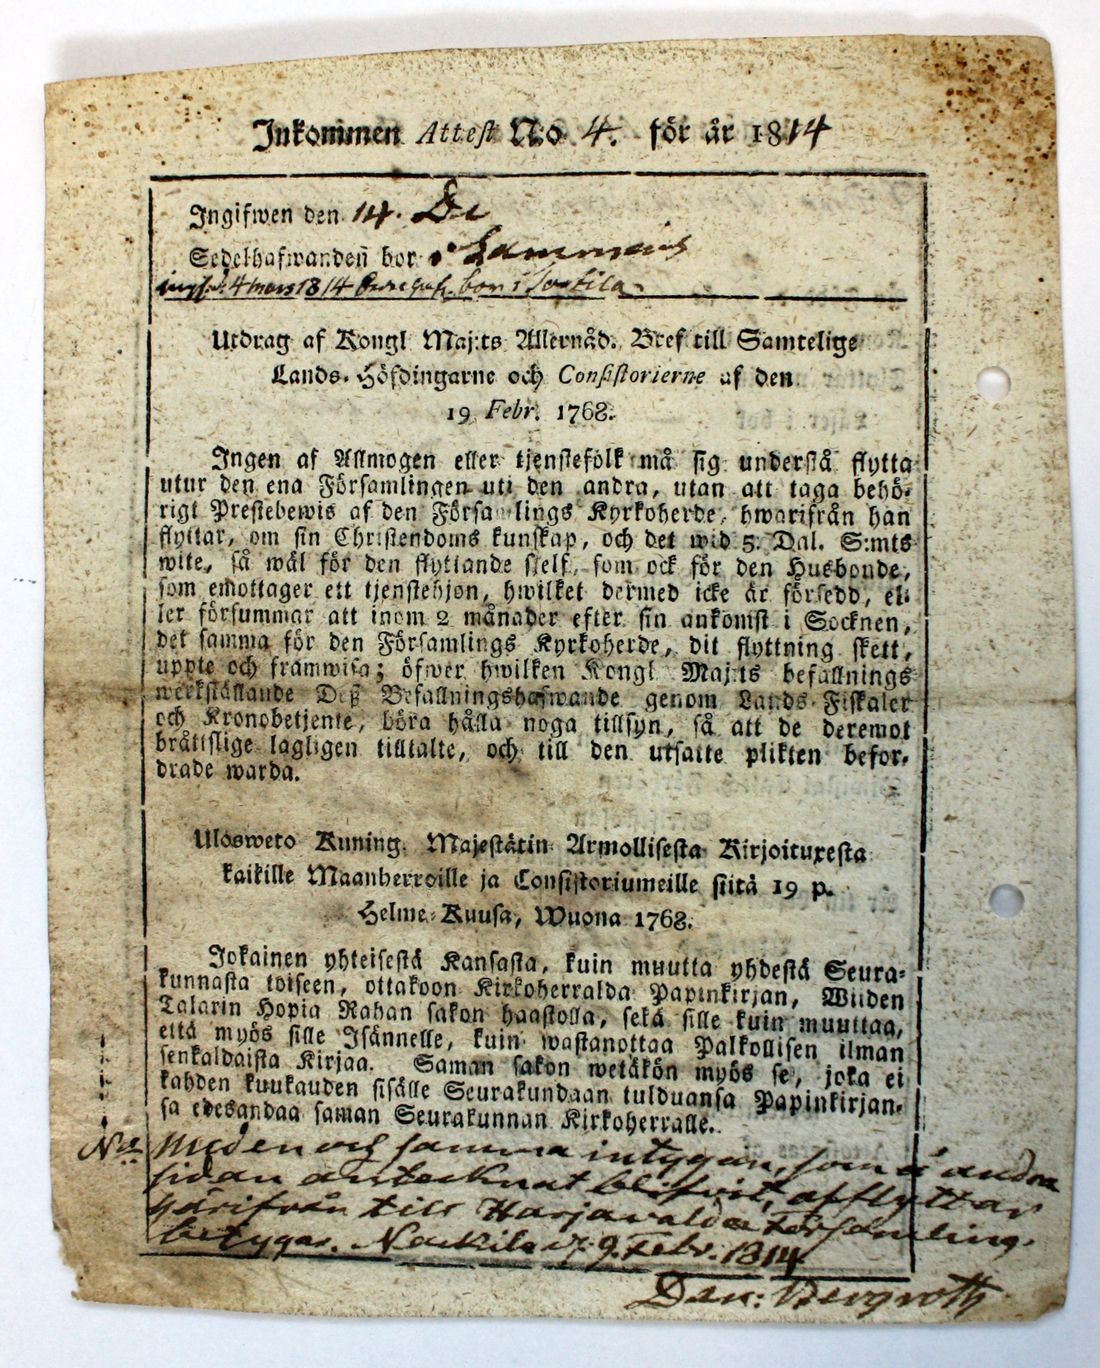 Inkommen Attest No 4. för år 1814
Ingifwen den 14.
Sedelhafwanden bor i
4 mars 1814 bor i
Utdrag af Kongl Maj:ts Allernåd. Bref till Samtelige
Lands-Höfdingarne och Consistorierne af den
19 Febr. 1768.
Ingen af Allmogen eller tjenstefolk må sig understå flytta
utur den ena Församlingen uti den andra, utan att taga behö-
rigt Prestebewis af den Församlings Kyrkoherde, hwarifrån han
flyttar, om sin Christendoms kunskap, och det wid 5. Dal. S:mts
wite, så wäl för den flyttande sjelf, som ock för den Husbonde,
som emottager ett tjenstehjon, hwilket dermed icke är försedd, el-
ler försummar att inom 2 månader efter sin ankomst i Socknen,
det samma för den Församlings Kyrkoherde, dit flyttning skett,
uppte och framwisa; öfwer hwilken Kongl Maj:ts befallnings
werkställande Deß Befallningshafwande genom Lands-Fiskaler
och Kronobetjente, böra hålla noga tillsyn, så att de deremot
bråttslige lagligen tilltalte, och till den utsatte plikten befor-
drade warda.
Ulosweto Kuning. Majestätin Armollisesta Kirjoituxesta
kaikille Maanherroille ja Consistoriumeille siitä 19 p.
Helme-Kuusa, Wuona 1768.
Jokainen yhteisestä Kansasta, kuin muutta yhdestä Seura-
kunnasta toiseen, ottakoon Kirkoherralda Papinkirjan, Wiiden
Talarin Hopia Rahan sakon haastolla, sekä sille kuin muuttaa,
että myös sille Isännelle, kuin wastanottaa Palkollisen ilman
senkaldaista Kirjaa. Saman sakon wetäkön myös se, joka ei
kahden kuukauden sisälle Seurakundaan tulduansa Papinkirjan-
sa edesandaa saman Seurakunnan Kirkoherralle.
Med en och samma intygan, som å andra
sidan antecknat blifvit, afflyttar
härifrån till Harjavalda Församling.
betygar. Nackila d. 9. Febr. 1814
Dan: Bergroth